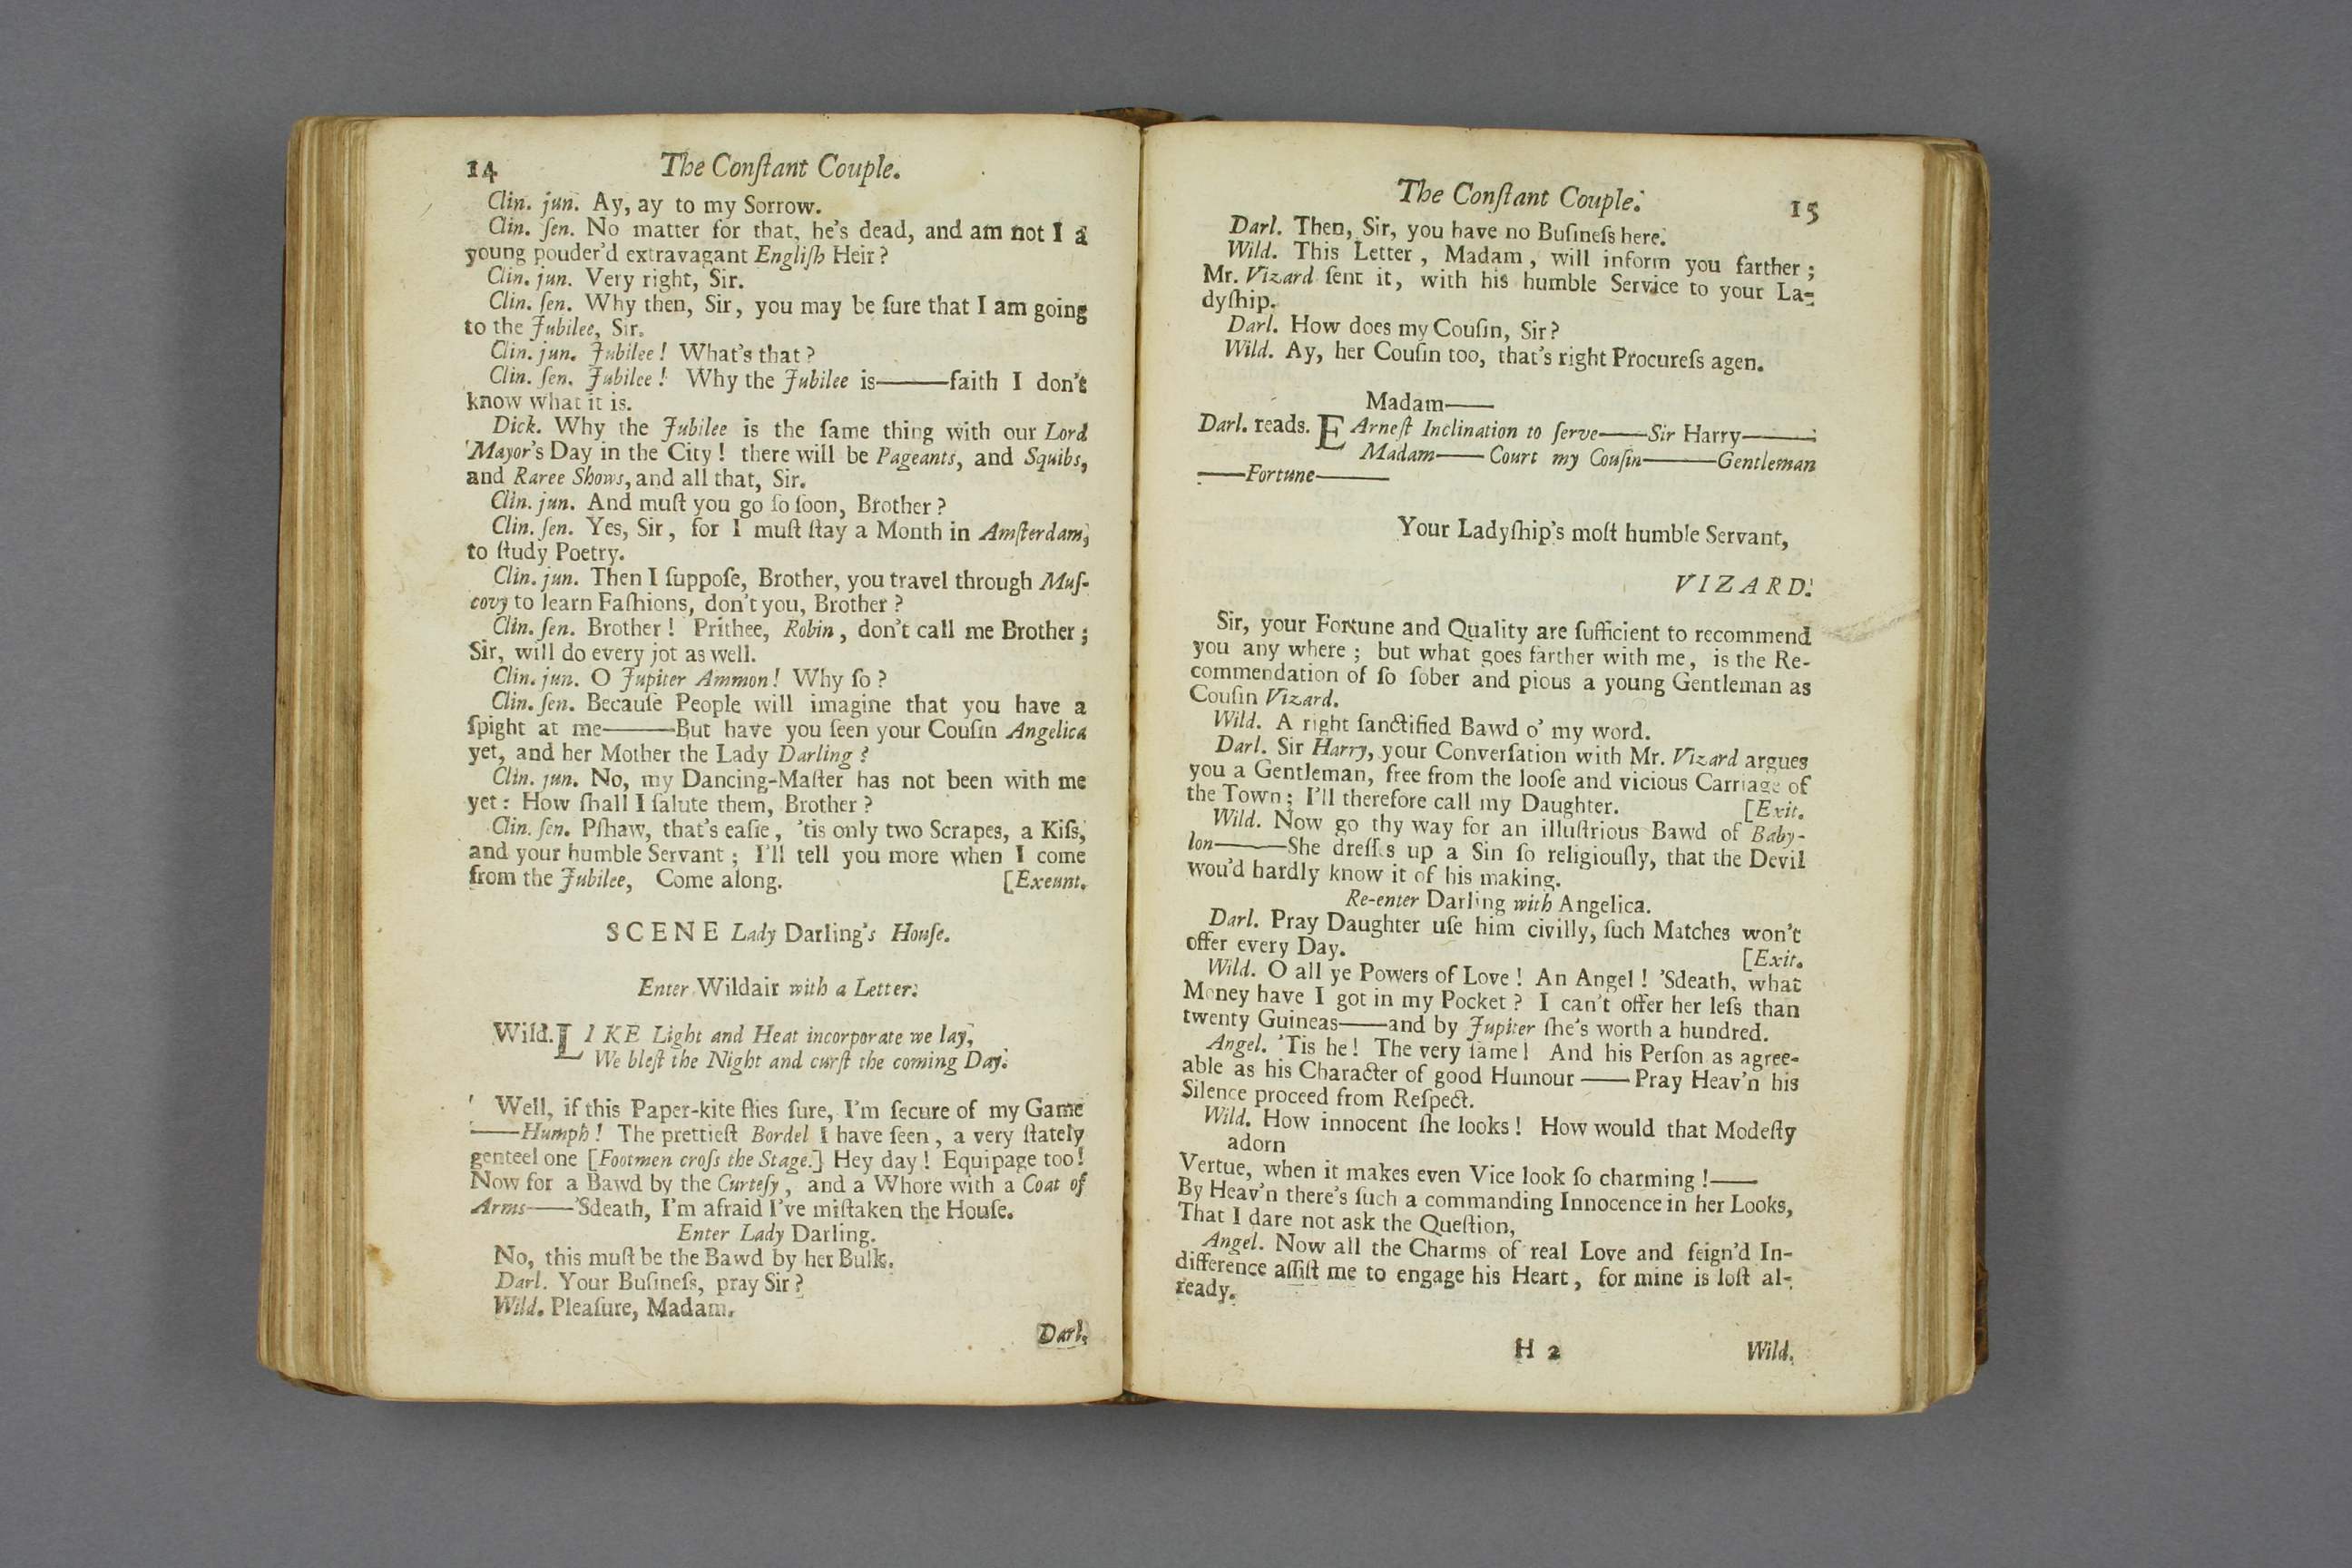 14 The Conſtant Couple.
Clin. jun. Ay, ay to my Sorrow.
Clin. ſen. No matter for that, he's dead, and am not I a
young pouder'd extravagant Engliſh Heir?
Clin. jun. Very right, Sir.
Clin. ſen. Why then, Sir, you may be ſure that I am going
to the Jubilee, Sir.
Clin. jun. Jubilee! What's that?
Clin. ſen. Jubilee! Why the Jubilee is——faith I don't
know what it is.
Dick. Why the Jubilee is the ſame thing with our Lord
Mayor's Day in the City! there will be Pageants, and Squibs,
and Raree Shows, and all that, Sir.
Clin. jun. And muſt you go ſo ſoon, Brother?
Clin. ſen. Yes, Sir, for I muſt ſtay a Month in Amſterdam,
to ſtudy Poetry.
Clin. jun. Then I ſuppoſe, Brother, you travel through Muſ-
covy to learn Faſhions, don't you, Brother?
Clin. ſen. Brother! Prithee, Robin, don't call me Brother;
Sir, will do every jot as well.
Clin. jun. O Jupiter Ammon! Why ſo?
Clin. ſen. Becauſe People will imagine that you have a
ſpight at me——But have you ſeen your Couſin Angelica
yet, and her Mother the Lady Darling?
Clin. jun. No, my Dancing-Maſter has not been with me
yet: How ſhall I ſalute them, Brother?
Clin. ſen. Pſhaw, that's eaſie, 'tis only two Scrapes, a Kiſs,
and your humble Servant; I'll tell you more when I come
from the Jubilee, Come along. [Exeunt.
SCENE Lady Darling's Houſe.
Enter Wildair with a Letter.
Wild. LIKE Light and Heat incorporate we lay,
We bleſt the Night and curſt the coming Day.
Well, if this Paper-kite flies ſure, I'm ſecure of my Game
——Humph! The prettieſt Bordel I have ſeen, a very ſtately
genteel one [Footmen croſs the Stage.] Hey day! Equipage too!
Now for a Bawd by the Curteſy, and a Whore with a Coat of
Arms——'Sdeath, I'm afraid I've miſtaken the Houſe.
Enter Lady Darling.
No, this muſt be the Bawd by her Bulk.
Darl. Your Buſineſs, pray Sir?
Wild. Pleaſure, Madam.
Darl.
The Conſtant Couple. 15
Darl. Then, Sir, you have no Buſineſs here.
Wild. This Letter, Madam, will inform you farther;
Mr. Vizard ſent it, with his humble Service to your La-
dyſhip.
Darl. How does my Couſin, Sir?
Wild. Ay, her Couſin too, that's right Procureſs agen.
Madam——
Darl. reads. EArneſt Inclination to ſerve——Sir Harry——
Madam——Court my Couſin——Gentleman
——Fortune——
Your Ladyſhip's moſt humble Servant,
VIZARD.
Sir, your Fortune and Quality are ſufficient to recommend
you any where; but what goes farther with me, is the Re-
commendation of ſo ſober and pious a young Gentleman as
Couſin Vizard.
Wild. A right ſanctified Bawd o' my word.
Darl. Sir Harry, your Converſation with Mr. Vizard argues
you a Gentleman, free from the looſe and vicious Carriage of
the Town; I'll therefore call my Daughter. [Exit.
Wild. Now go thy way for an illuſtrious Bawd of Baby-
lon——She dreſſes up a Sin ſo religiouſly, that the Devil
wou'd hardly know it of his making.
Re-enter Darling with Angelica.
Darl. Pray Daughter uſe him civilly, ſuch Matches won't
offer every Day. [Exit.
Wild. O all ye Powers of Love! An Angel! 'Sdeath, what
Money have I got in my Pocket? I can't offer her leſs than
twenty Guineas——and by Jupiter ſhe's worth a hundred.
Angel. 'Tis he! The very ſame! And his Perſon as agree-
able as his Character of good Humour——Pray Heav'n his
Silence proceed from Reſpect.
Wild. How innocent ſhe looks! How would that Modeſty
adorn
Vertue, when it makes even Vice look ſo charming!——
By Heav'n there's ſuch a commanding Innocence in her Looks,
That I dare not ask the Queſtion,
Angel. Now all the Charms of real Love and feign'd In-
difference aſſiſt me to engage his Heart, for mine is loſt al-
ready.
H 2 Wild.